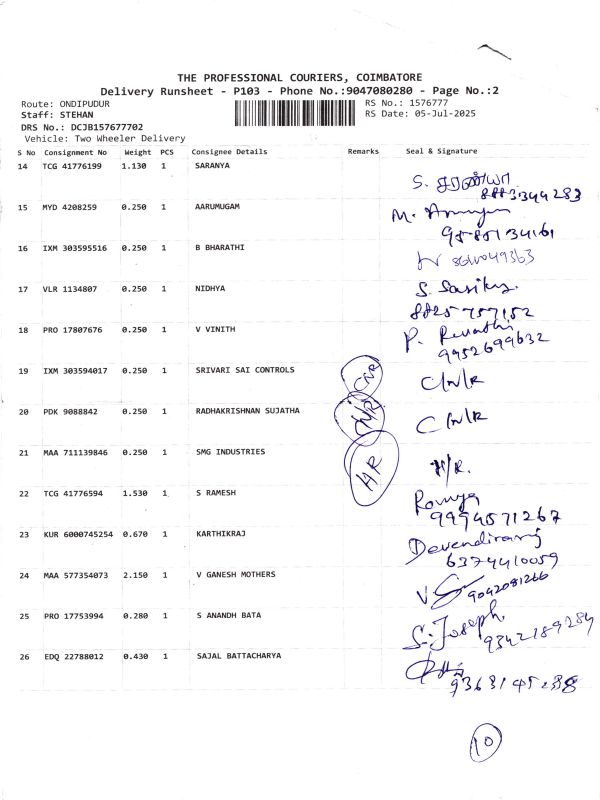 THE PROFESSIONAL COURIERS, COIMBATORE
Delivery Runsheet - P103 - Phone No.:9047080280 - Page No.:2
Route: ONDIPUDUR RS No.: 1576777
Staff: STEHAN RS Date: 05-Jul-2025
DRS No.: DCJB157677702
Vehicle: Two Wheeler Delivery
S No Consignment No Weight PCS Consignee Details Remarks Seal & Signature
14 TCG 41776199 1.130 1 SARANYA
S. சரண்யா
8883344283
15 MYD 4208259 0.250 1 AARUMUGAM
M.
9585134161
16 IXM 303595516 0.250 1 B BHARATHI
17 VLR 1134807 0.250 1 NIDHYA S. Sasiky
8825757152
18 PRO 17807676 0.250 1 V VINITH P. Revathi
9952699632
19 IXM 303594017 0.250 1 SRIVARI SAI CONTROLS CNR C/N/R
20 PDK 9088842 0.250 1 RADHAKRISHNAN SUJATHA C/N/R C/N/R
21 MAA 711139846 0.250 1 SMG INDUSTRIES HR H/R.
22 TCG 41776594 1.530 1 S RAMESH Ramya
9994571267
23 KUR 6000745254 0.670 1 KARTHIKRAJ Devendiraraj
6374410059
24 MAA 577354073 2.150 1 V GANESH MOTHERS 9042081266
25 PRO 17753994 0.280 1 S ANANDH BATA S. Joseph
9342189284
26 EDQ 22788012 0.430 1 SAJAL BATTACHARYA
9363145238
10